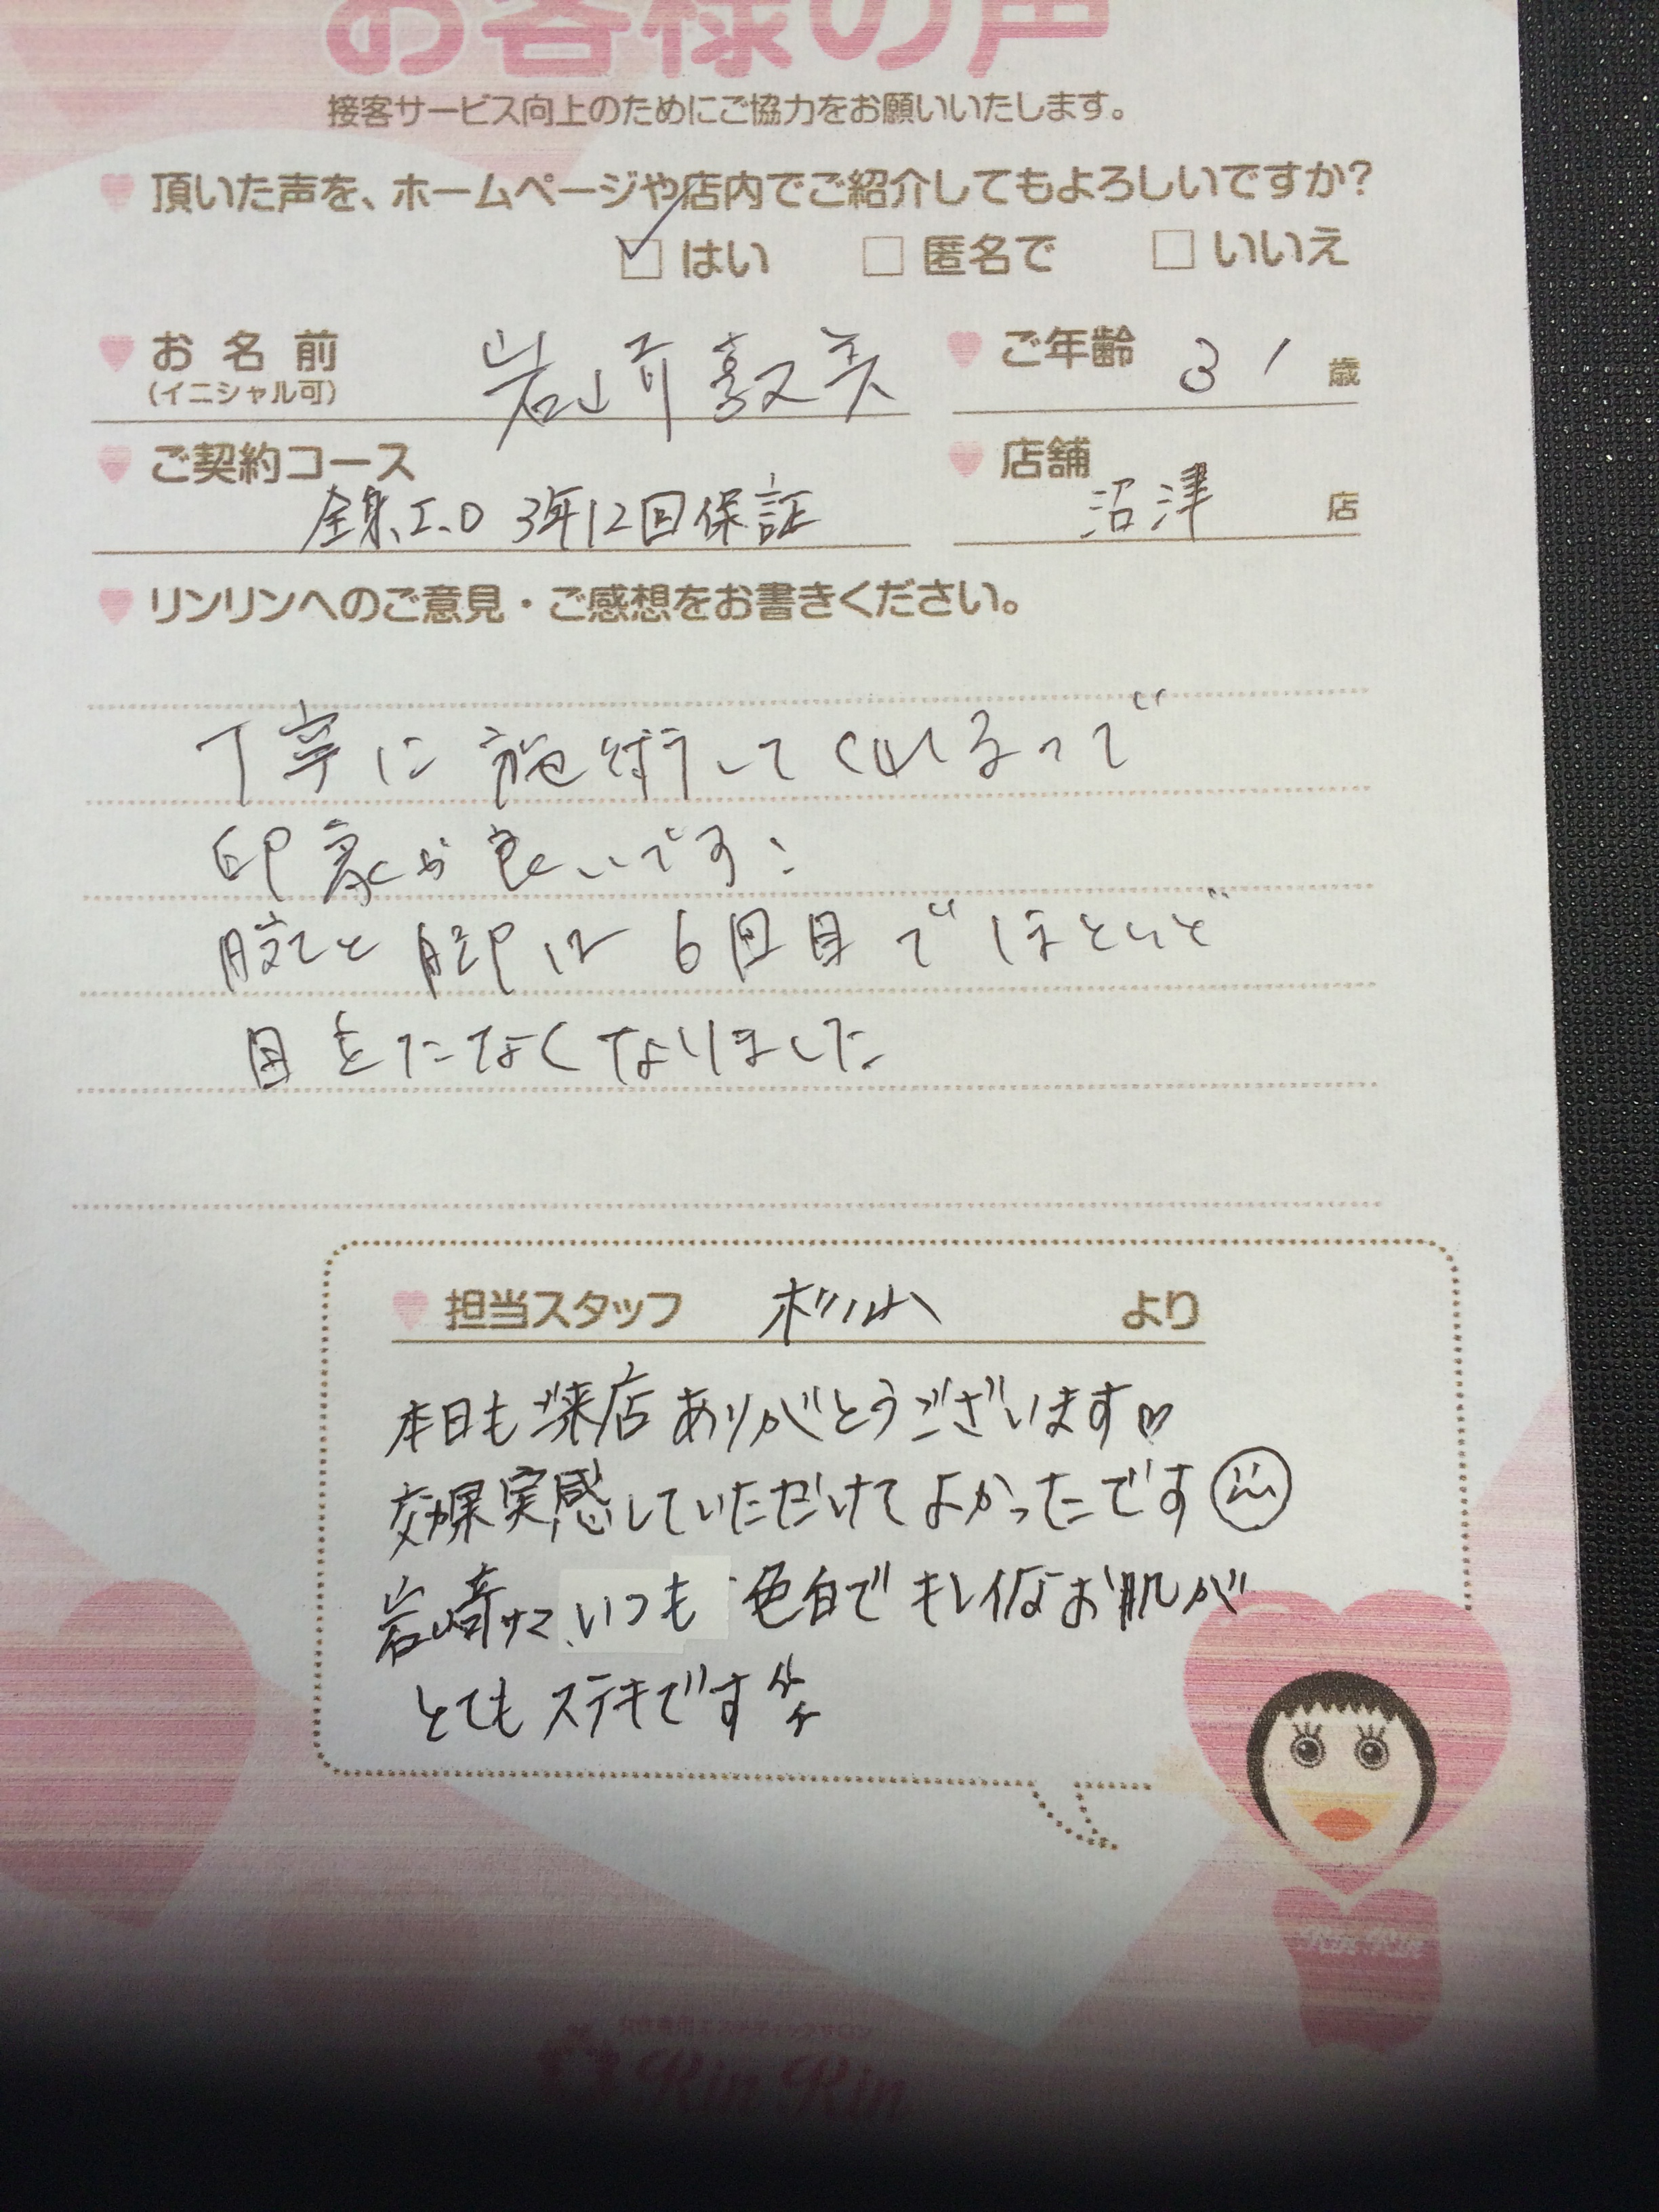 お客様の声
接客サービス向上のためにご協力をお願いいたします。
頂いた声を、ホームページや店内でご紹介してもよろしいですか?
はい 匿名で いいえ
お名前 岩崎敦美 ご年齢 31 歳
(イニシャル可)
ご契約コース 店舗
全身I.O 3年12回保証 沼津 店
リンリンへのご意見・ご感想をお書きください。
丁寧に施術してくれるので
印象が良いです!
腕と脚は6回目でほとんど
目立たなくなりました
担当スタッフ 杉山 より
本日もご来店ありがとうございます♡
効果実感していただけてよかったです
岩崎サマ、いつも色白でキレイなお肌が
とてもステキです
Rin Rin
Rin Rin